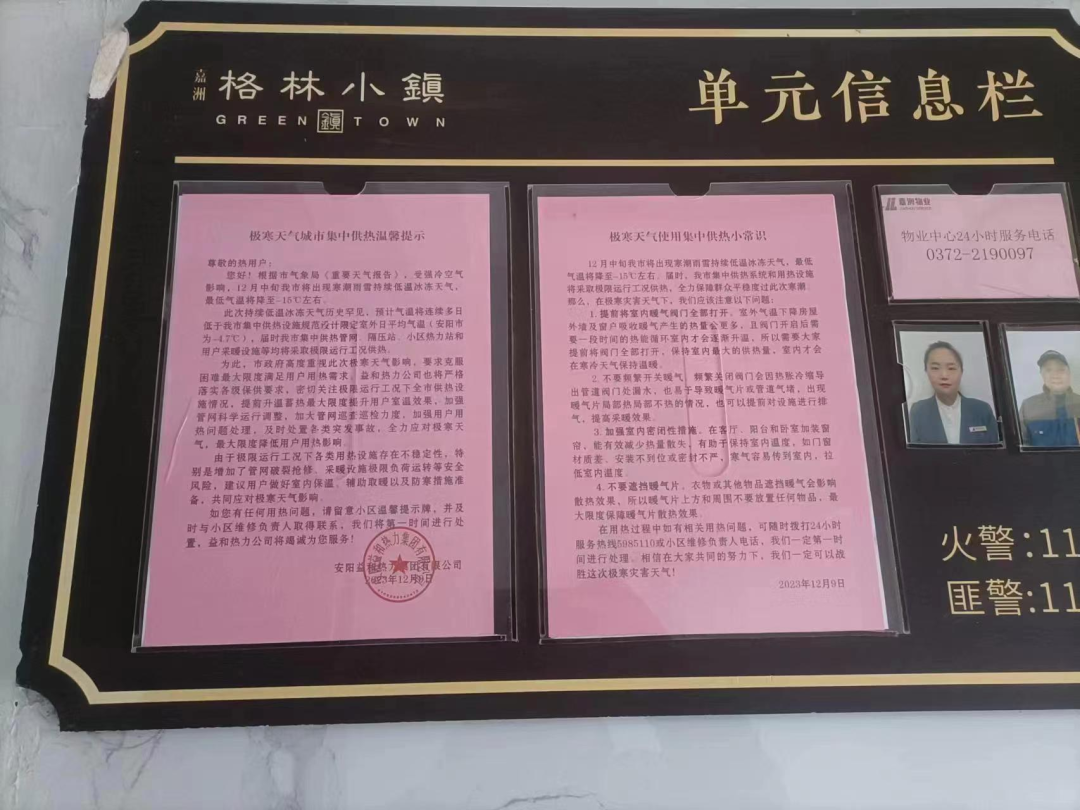 嘉洲
格林小鎮
GREEN 鎮 TOWN
单元信息栏
极寒天气城市集中供热温馨提示
尊敬的热用户：
您好！根据市气象局《重要天气报告》，受强冷空气
影响，12月中旬我市将出现寒潮雨雪持续低温冰冻天气，
最低气温将降至-15℃左右。
此次持续低温冰冻天气历史罕见，预计气温将连续多日
低于我市集中供热设施规范设计限定室外日平均气温（安阳市
为-4.7℃），届时我市集中供热管网、隔压站、小区热力站和
用户采暖设施等均将采取极限运行工况供热。
为此，市政府高度重视此次极寒天气影响，要求克服
困难最大限度满足用户用热需求。益和热力公司也将严格
落实各级保供要求，密切关注极限运行工况下全市供热设
施情况，提前升温蓄热最大限度提升用户室温效果，加强
管网科学运行调整，加大管网巡查巡检力度，加强用户用
热问题处理，及时处置各类突发事故，全力应对极寒天
气，最大限度降低用户用热影响。
由于极限运行工况下各类用热设施存在不稳定性，特
别是增加了管网破裂抢修、采暖设施极限负荷运转等安全
风险，建议用户做好室内保温、辅助取暖以及防寒措施准
备，共同应对极寒天气影响。
如您有任何用热问题，请留意小区温馨提示牌，并及
时与小区维修负责人取得联系，我们将第一时间进行处
置，益和热力公司将竭诚为您服务！
安阳益和热力集团有限公司
2023年12月9日
极寒天气使用集中供热小常识
12月中旬我市将出现寒潮雨雪持续低温冰冻天气，最低
气温将降至-15℃左右。届时，我市集中供热系统和用热设施
将采取极限运行工况供热，全力保障群众平稳度过此次寒潮。
那么，在极寒灾害天气下，我们应该注意以下问题：
1.提前将室内暖气阀门全部打开。室外气温下降房屋
外墙及窗户吸收暖气产生的热量会更多，且阀门开启后需
要一段时间的热能循环室内才会逐渐升温，所以需要大家
提前将阀门全部打开，保持室内最大的供热量，室内才会
在寒冷天气保持温暖。
2.不要频繁开关暖气。频繁关闭阀门会因热胀冷缩导
出管道阀门处漏水，也易于导致暖气片或管道气堵，出现
暖气片局部热局部不热的情况，也可以提前对设施进行排
气，提高采暖效果。
3.加强室内密闭性措施。在客厅、阳台和卧室加装窗
帘，能有效减少热量散失，有助于保持室内温度，如门窗
材质差、安装不到位或密封不严，寒气容易传到室内，拉
低室内温度。
4.不要遮挡暖气片。衣物或其他物品遮挡暖气会影响
散热效果，所以暖气片上方和周围不要放置任何物品，最
大限度保障暖气片散热效果。
在用热过程中如有相关用热问题，可随时拨打24小时
服务热线5985110或小区维修负责人电话，我们一定第一时
间进行处理。相信在大家共同的努力下，我们一定可以战
胜这次极寒灾害天气！
2023年12月9日
嘉洲物业
物业中心24小时服务电话
0372-2190097
火警:11
匪警:11